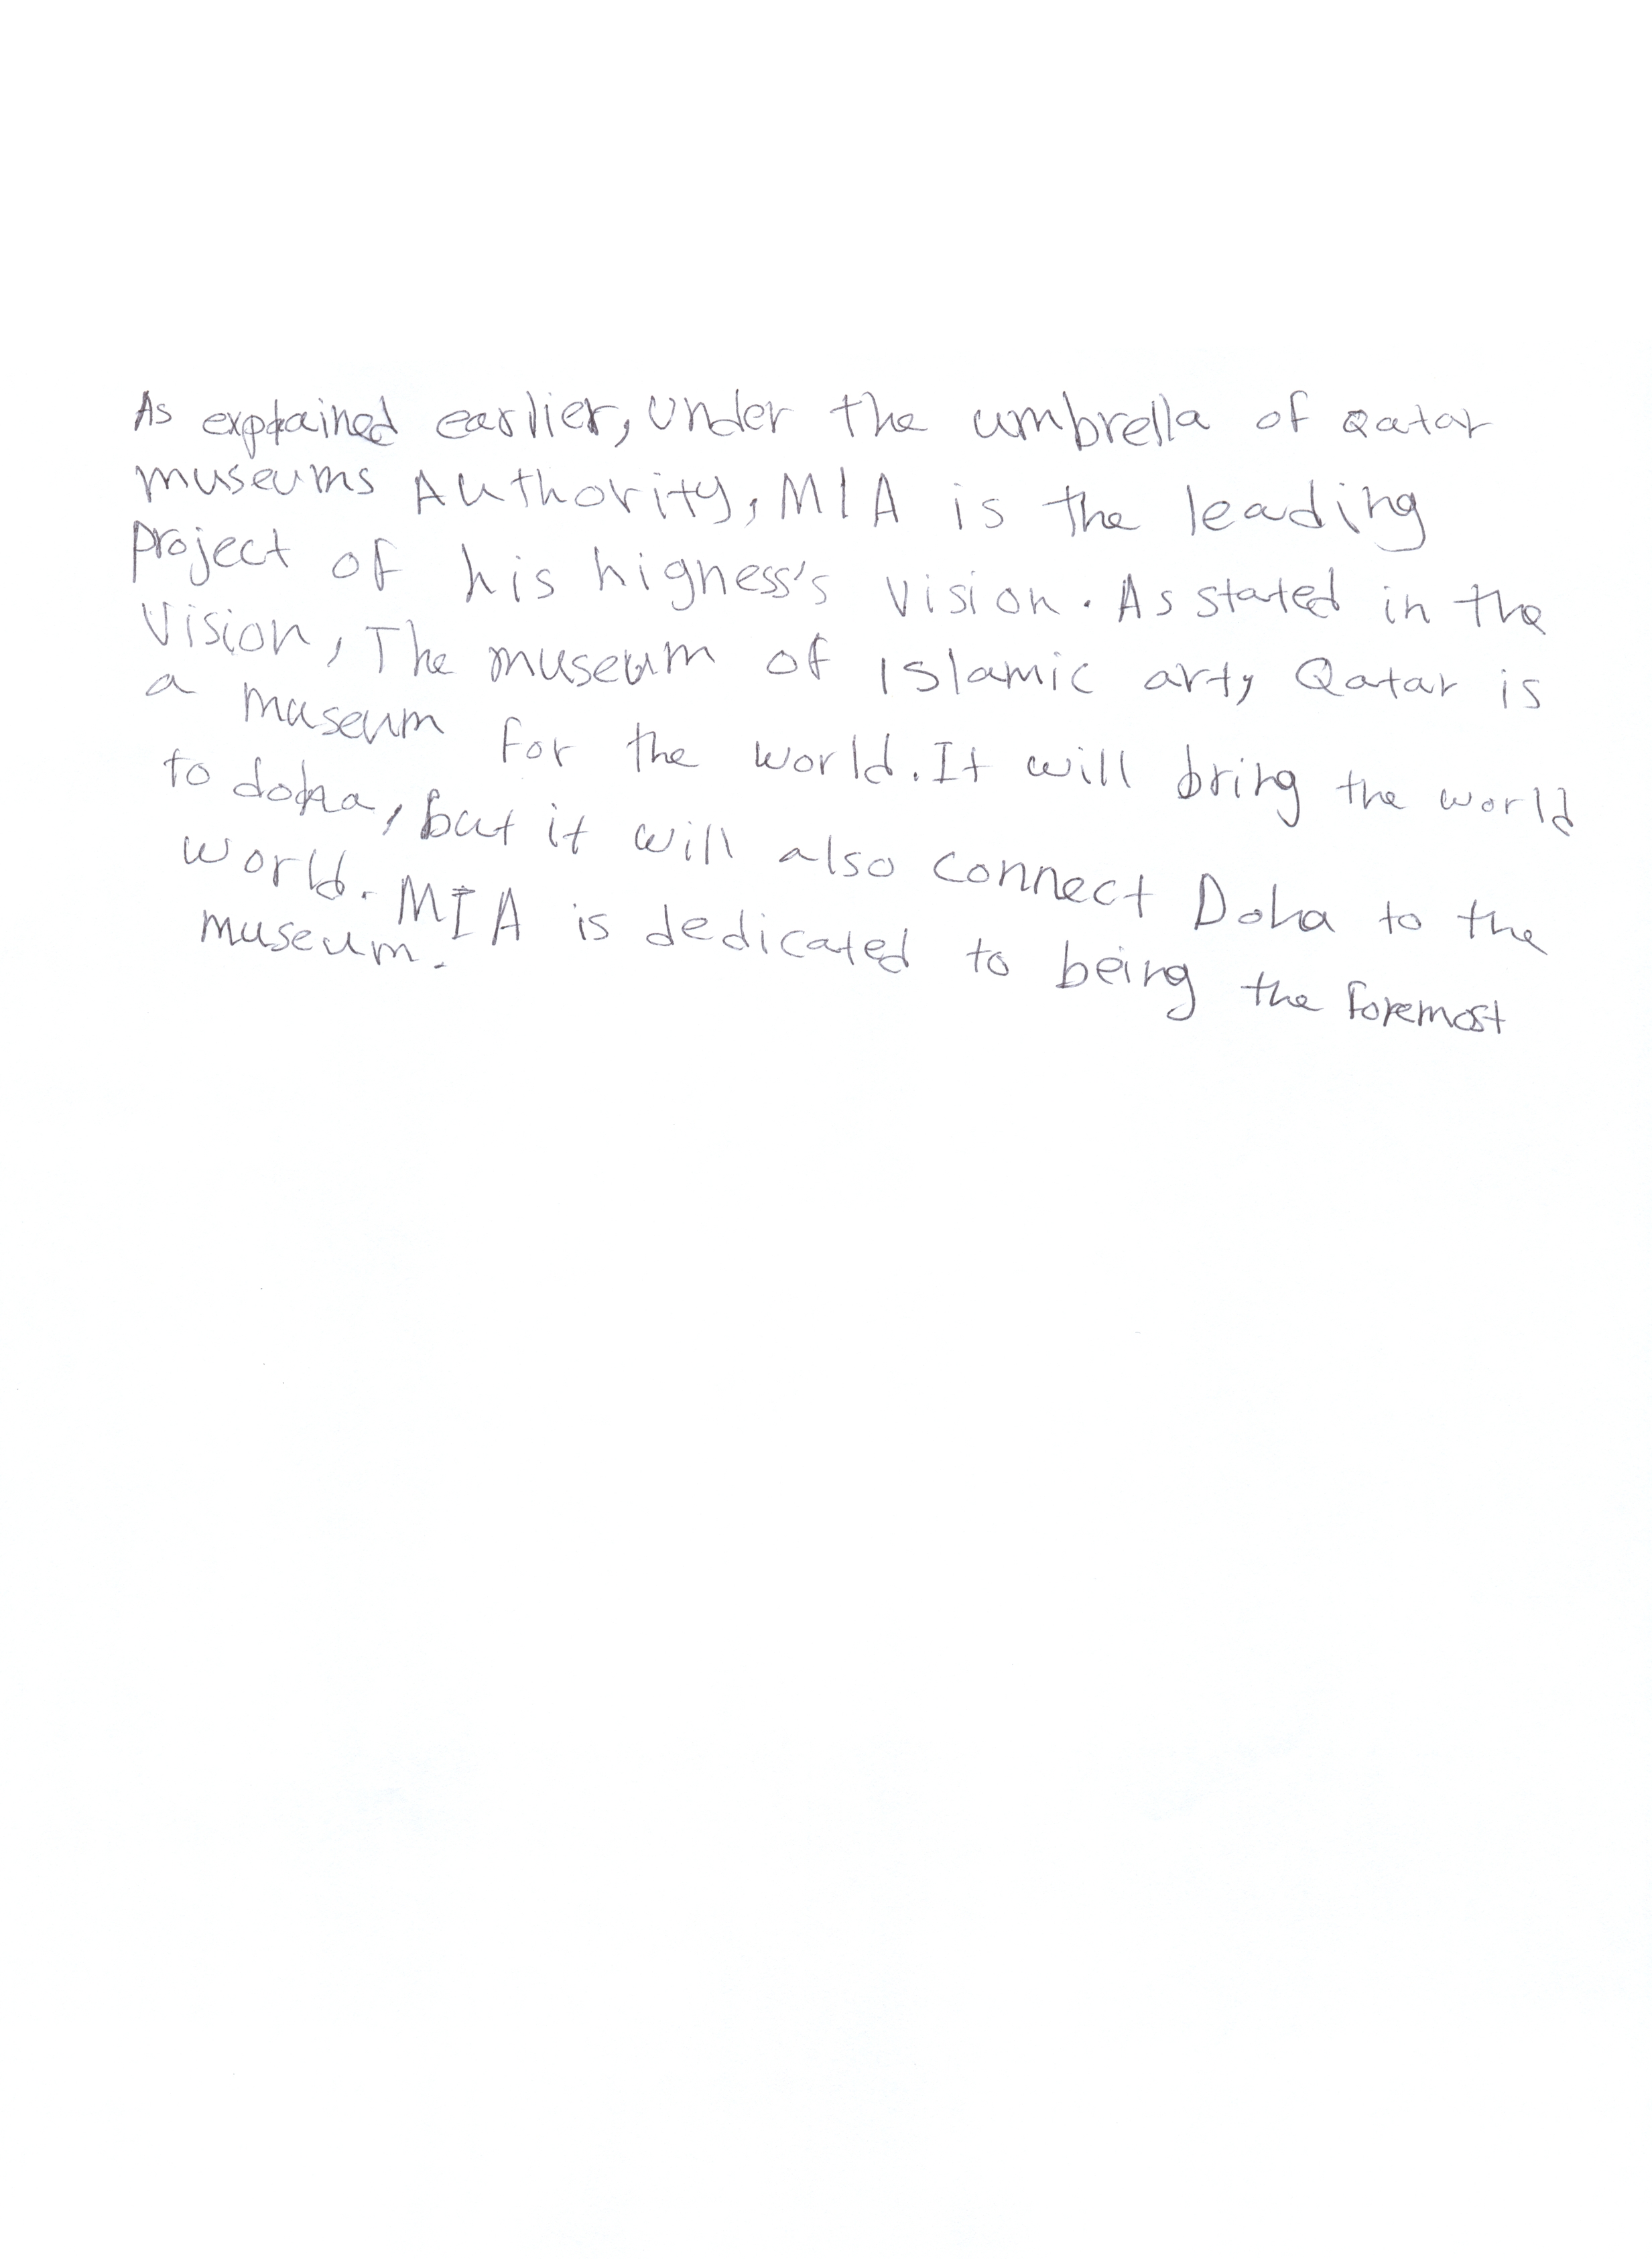 As explained earlier, under the umbrella of Qatar
museums Authority, MIA is the leading
project of his higness's vision. As stated in the
vision, The museum of Islamic arty Qatar is
a museum for the world. It will bring the world
to doha, but it will also connect Doha to the
world. MIA is dedicated to being the foremost
museum.